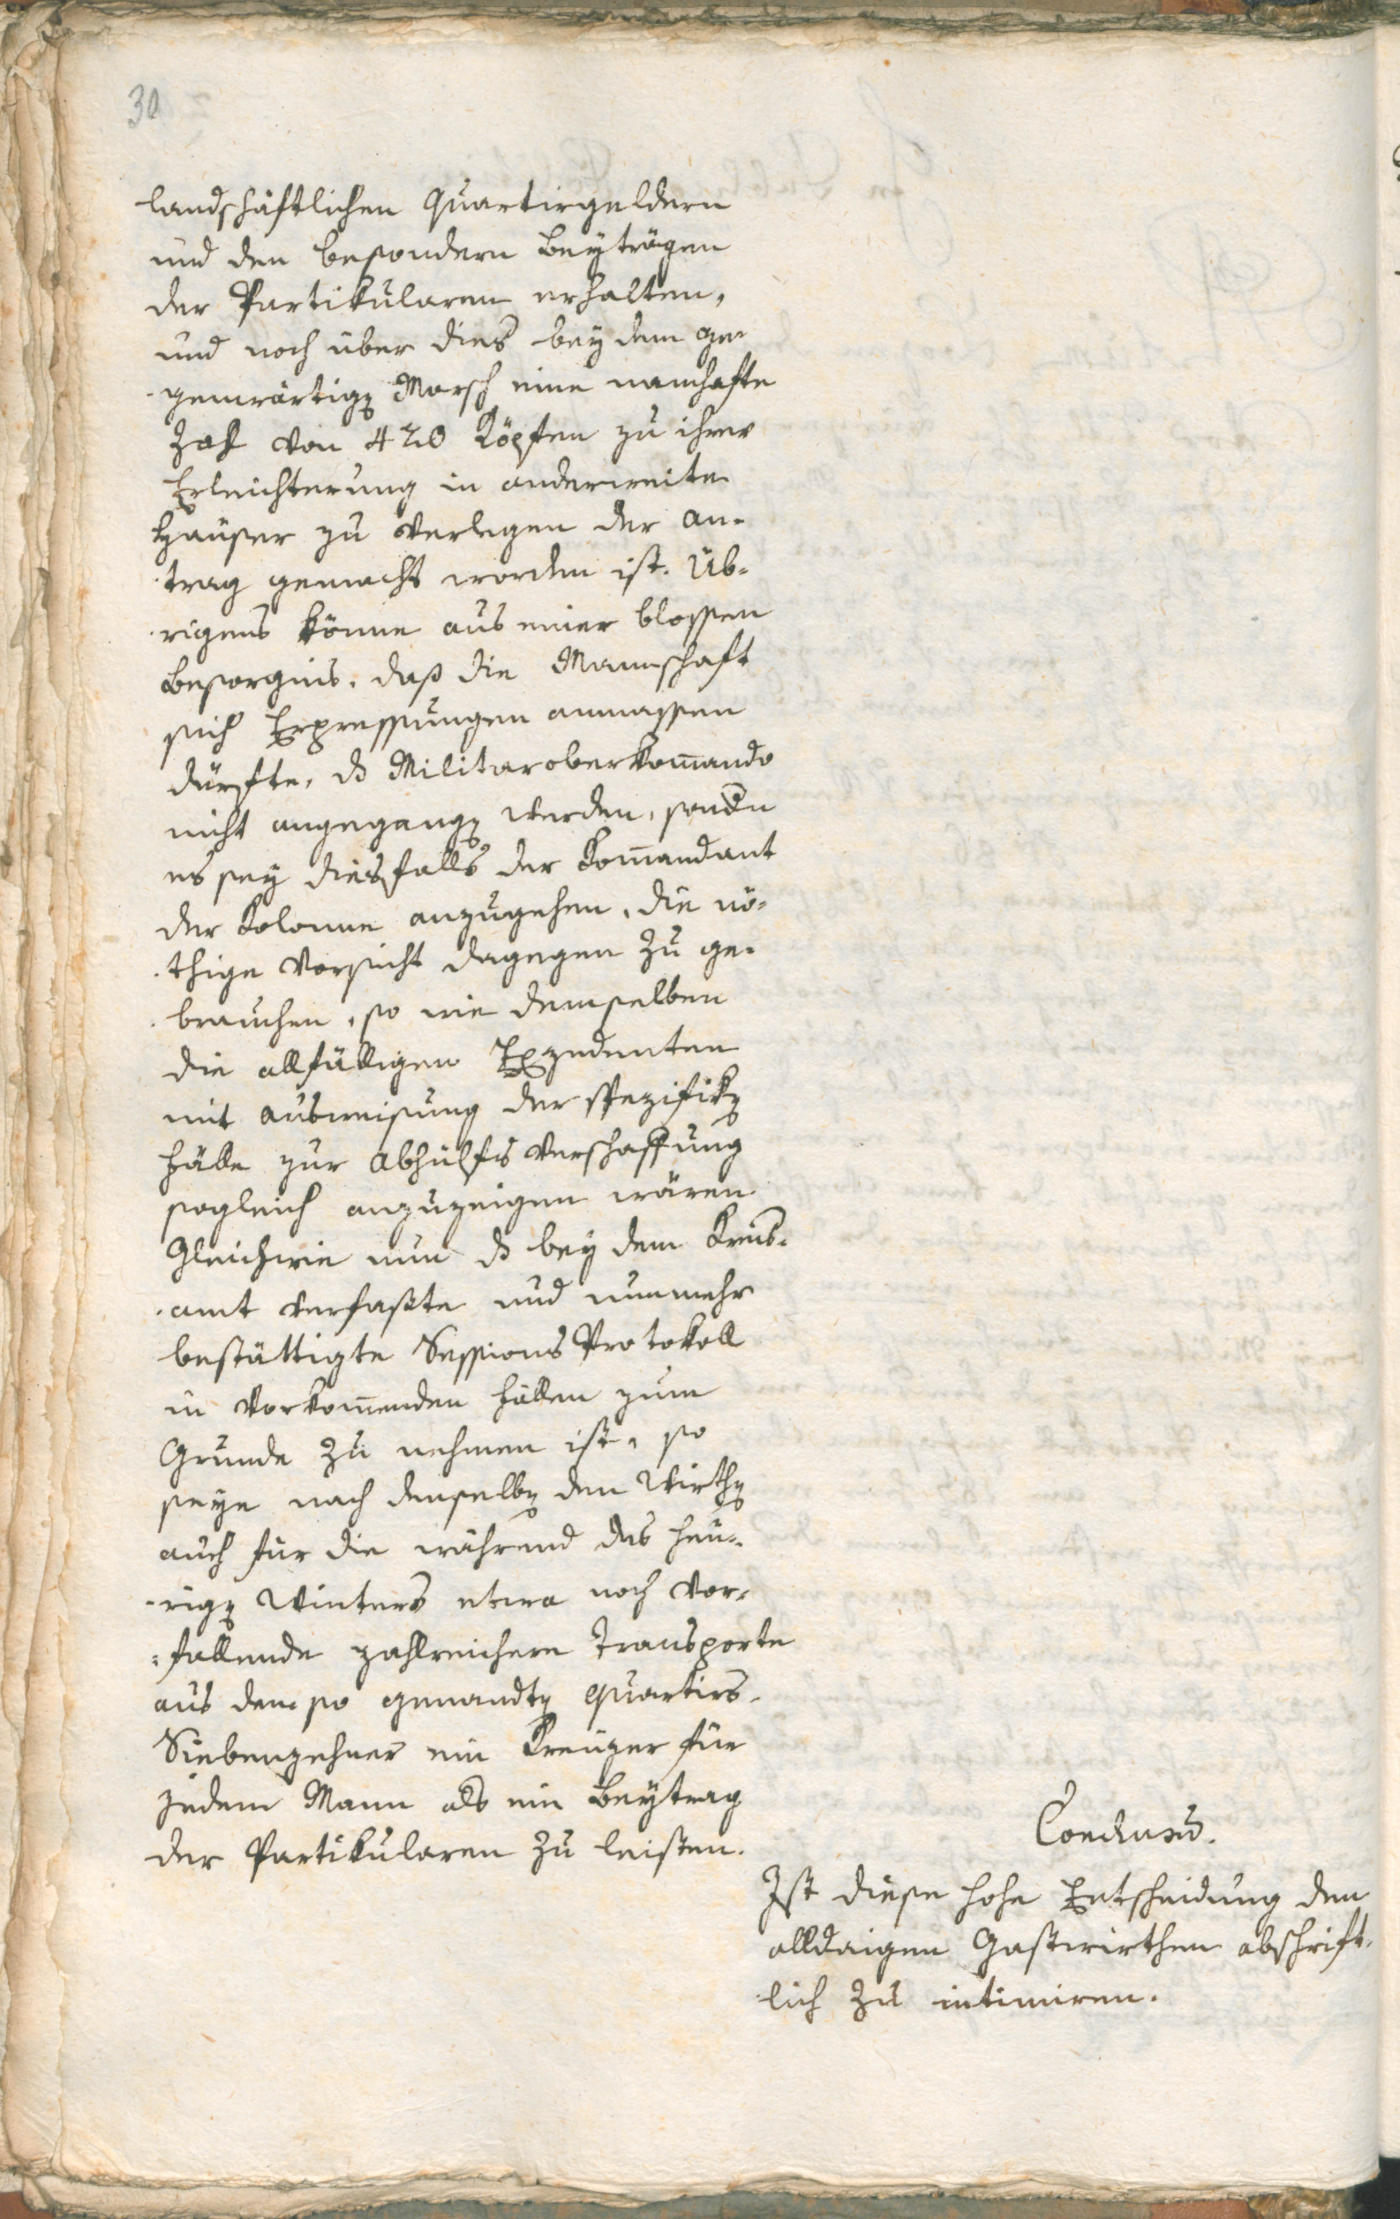 30
landschäftlichen Quartirgeldern
und den besondern Beyträgen
der Partikularen erhalten,
und noch über dies bey dem ge-
genwärtigen Marsch eine namhafte
Zahl von 420 Köpfen zu ihrer
Erleichterung in anderweite
Häuser zu verlegen der an-
trag gemacht worden ist. Üb-
rigens könne aus einer blossen
Besorgnis, daß die Mannschaft
sich Erpressungen anmassen
dürfte, dß Militaroberkom̄ando
nicht angegangen werden, sondern
es sey diesfalls der Kom̄andant
der Kolonne anzugehen, die nö-
thige Vorsicht dagegen zu ge-
brauchen, so wie demselben
die allfälligen Exzedenten
mit ausweisung der spezifiken
Fälle zur Abhülfs verschaffung
sogleich anzuzeigen wären.
Gleichwie nun dß bey dem Kreis-
amt verfaßte und nunmehr
bestättigte Sessions Protokoll
in vorkom̄enden Fällen zum
Grunde zu nehmen ist, so
seye nach denselben den Wirthen
auch für die während des heu-
rigen Winters etwa noch vor-
fallende zahlreichere Transporte
aus dem so genandten Quartirs-
Siebenzehner ein Kreuzer für
jedem Mann als ein Beytrag
der Partikularen zu leisten.
Conclusū.
Ist diese hohe Entscheidung den
alldaigen Gastwirthen abschrift-
lich zu intimiren.